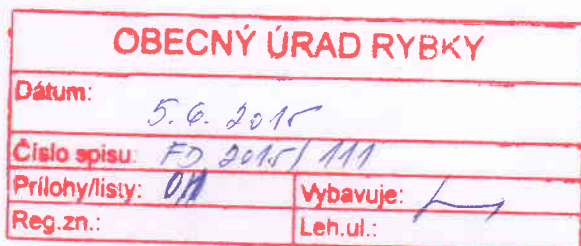 OBECNÝ ÚRAD RYBKY
Dátum:
5.6.2015
Číslo spisu: FD 2015/111
Prílohy/listy: Vybavuje:
Reg.zn.: Leh.ul.: